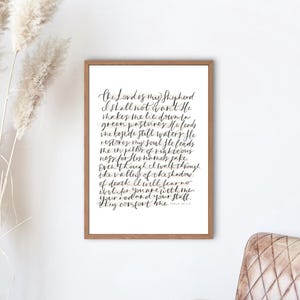 The Lord is my Shepherd
I shall not want. He
makes me lie down in
green pastures. He leads
me beside still waters. He
restores my soul. He leads
me in paths of righteous
ness for His names sake
Even though I walk through
the valley of the shadow
of death, I will fear no
evil for you are with me
your rod and your staff
they comfort me